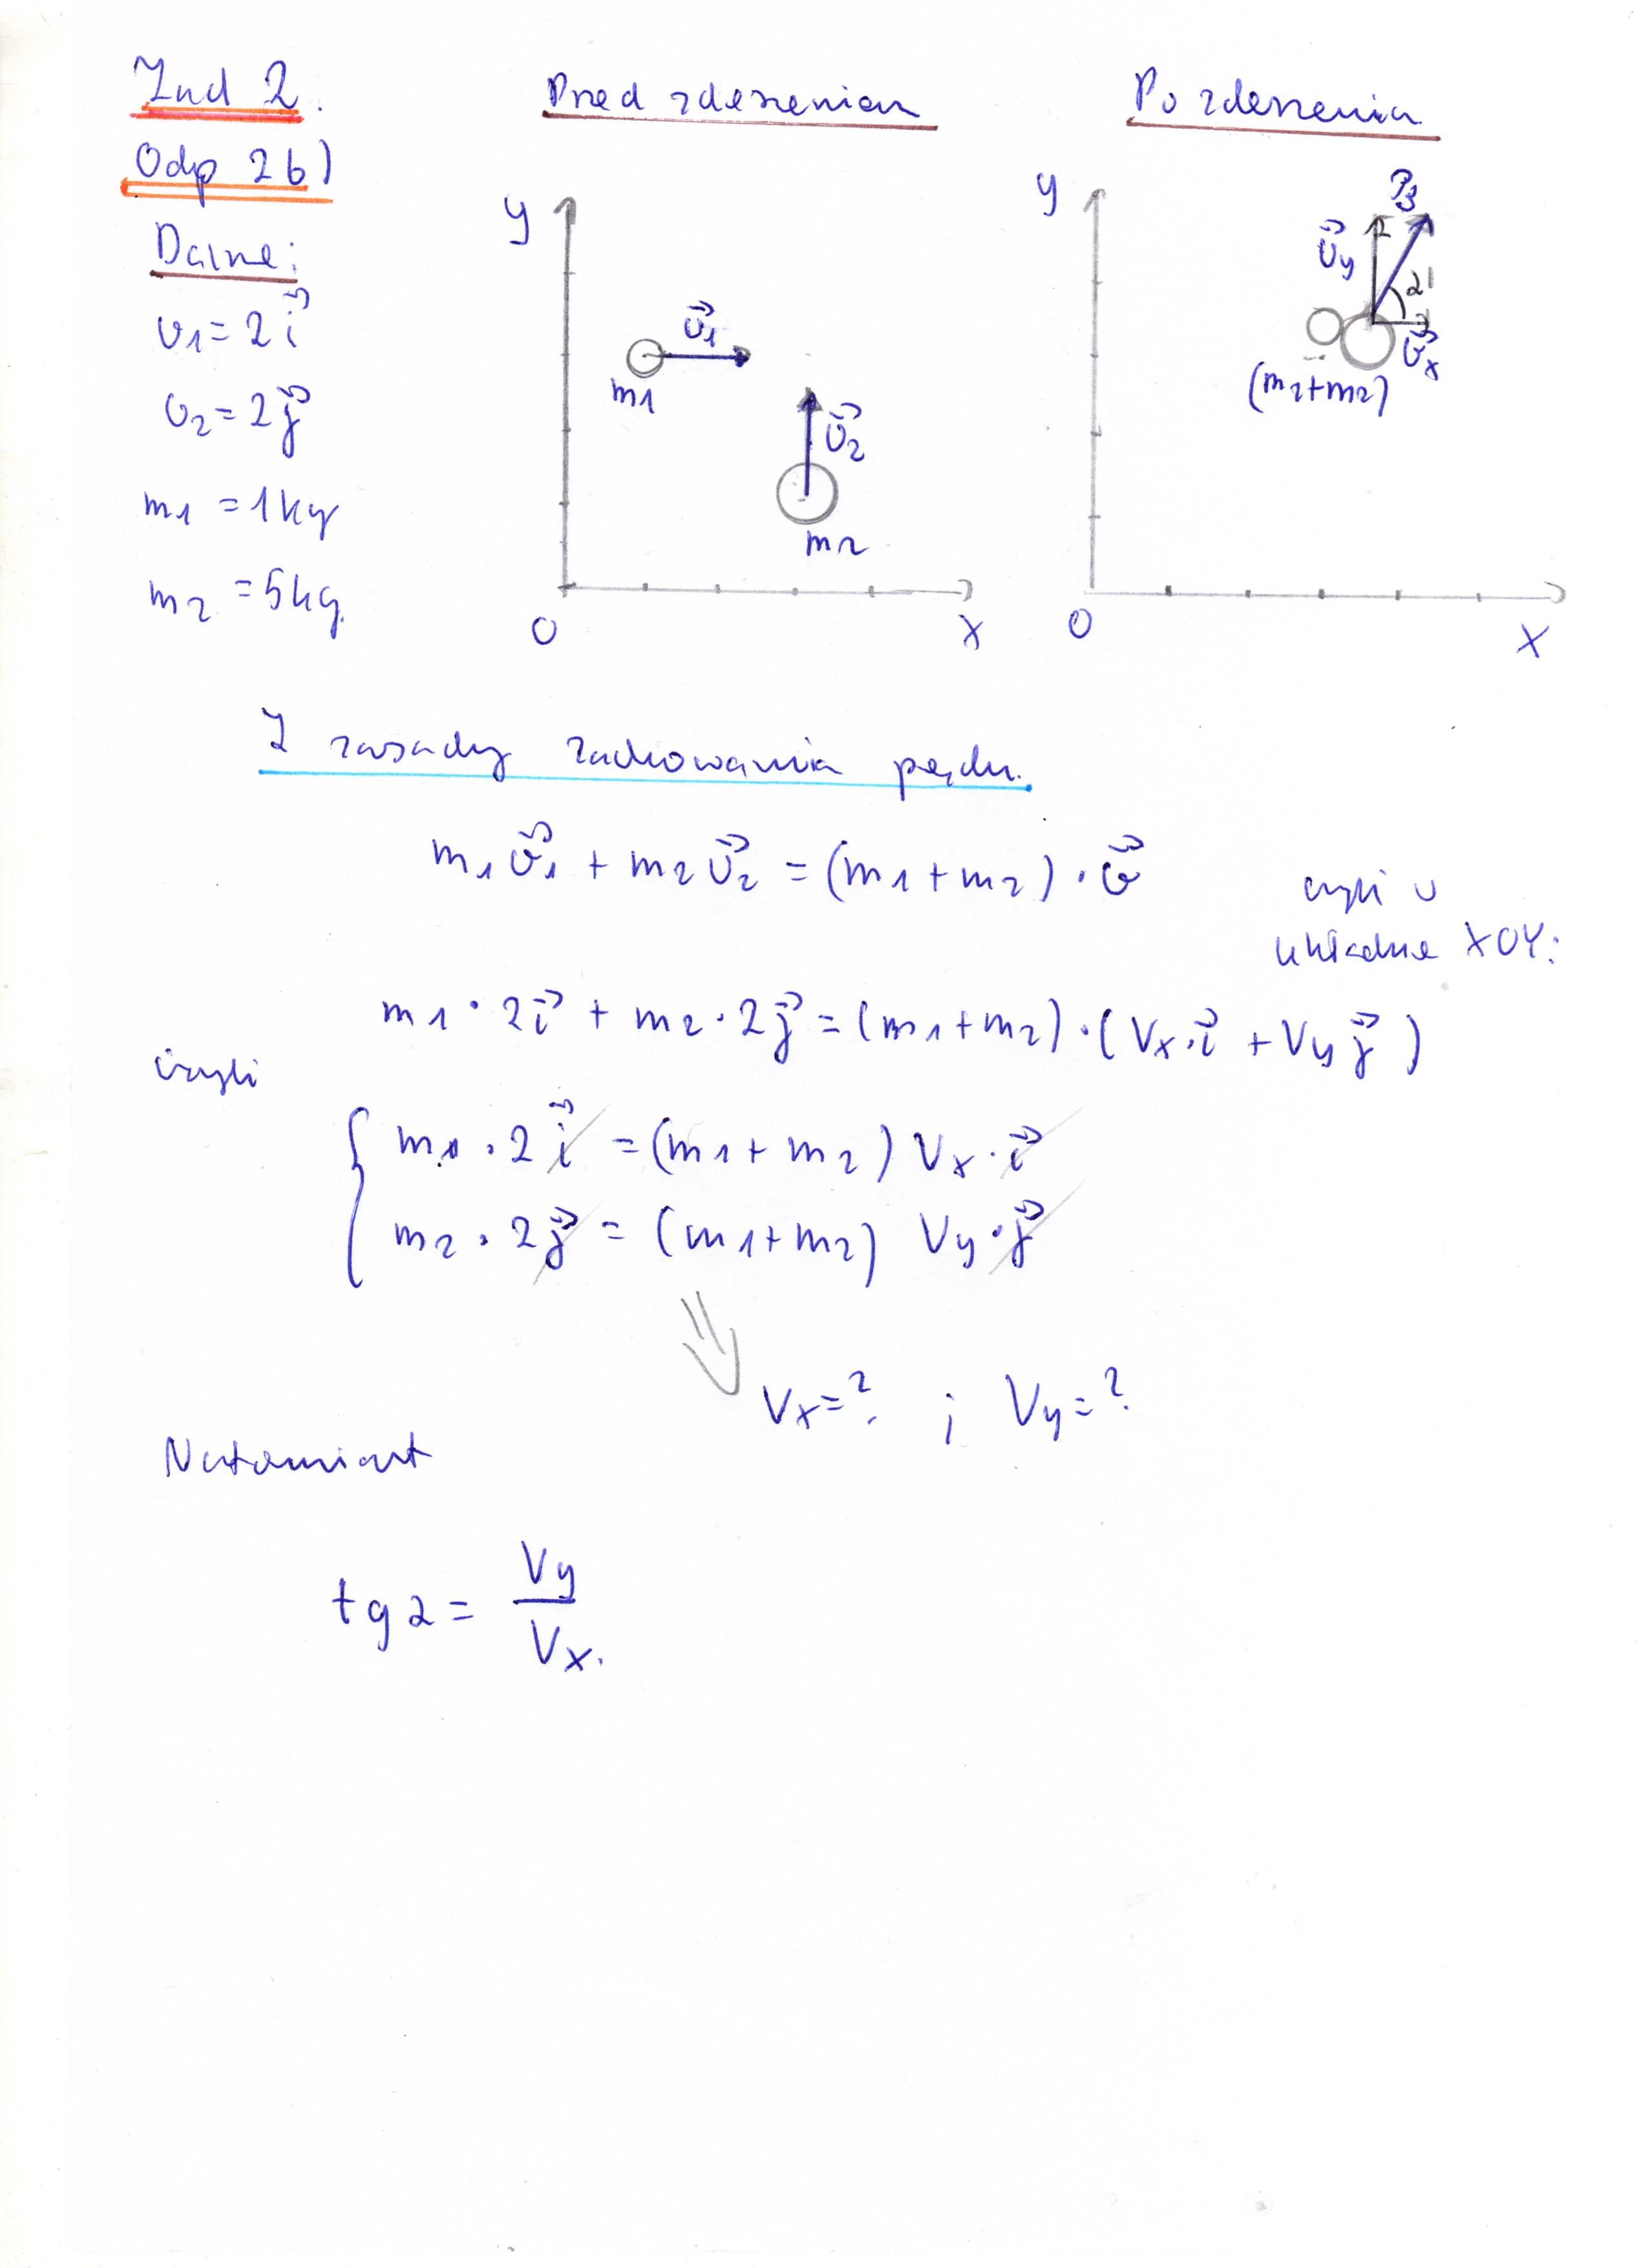 Zad 2.
Odp 2b)
Dane:
v1 = 2 i⃗
v2 = 2 j⃗
m1 = 1kg
m2 = 5kg.
Przed zderzeniem
y
v⃗1
m1
v⃗2
m2
0
x
Po zderzeniu
y
v⃗y
α
v⃗x
(m2+m2)
0
x
Z zasady zachowania pędu.
m1 v⃗1 + m2 v⃗2 = (m1 + m2) · v⃗
czyli w
układzie XOY:
m1 · 2i⃗ + m2 · 2j⃗ = (m1+m2) · (Vx · i⃗ + Vy j⃗)
czyli
m1 · 2 i⃗ = (m1 + m2) Vx · i⃗
m2 · 2j⃗ = (m1+m2) Vy · j⃗
Vx = ? ; Vy = ?
Natomiast
tg α = Vy / Vx.